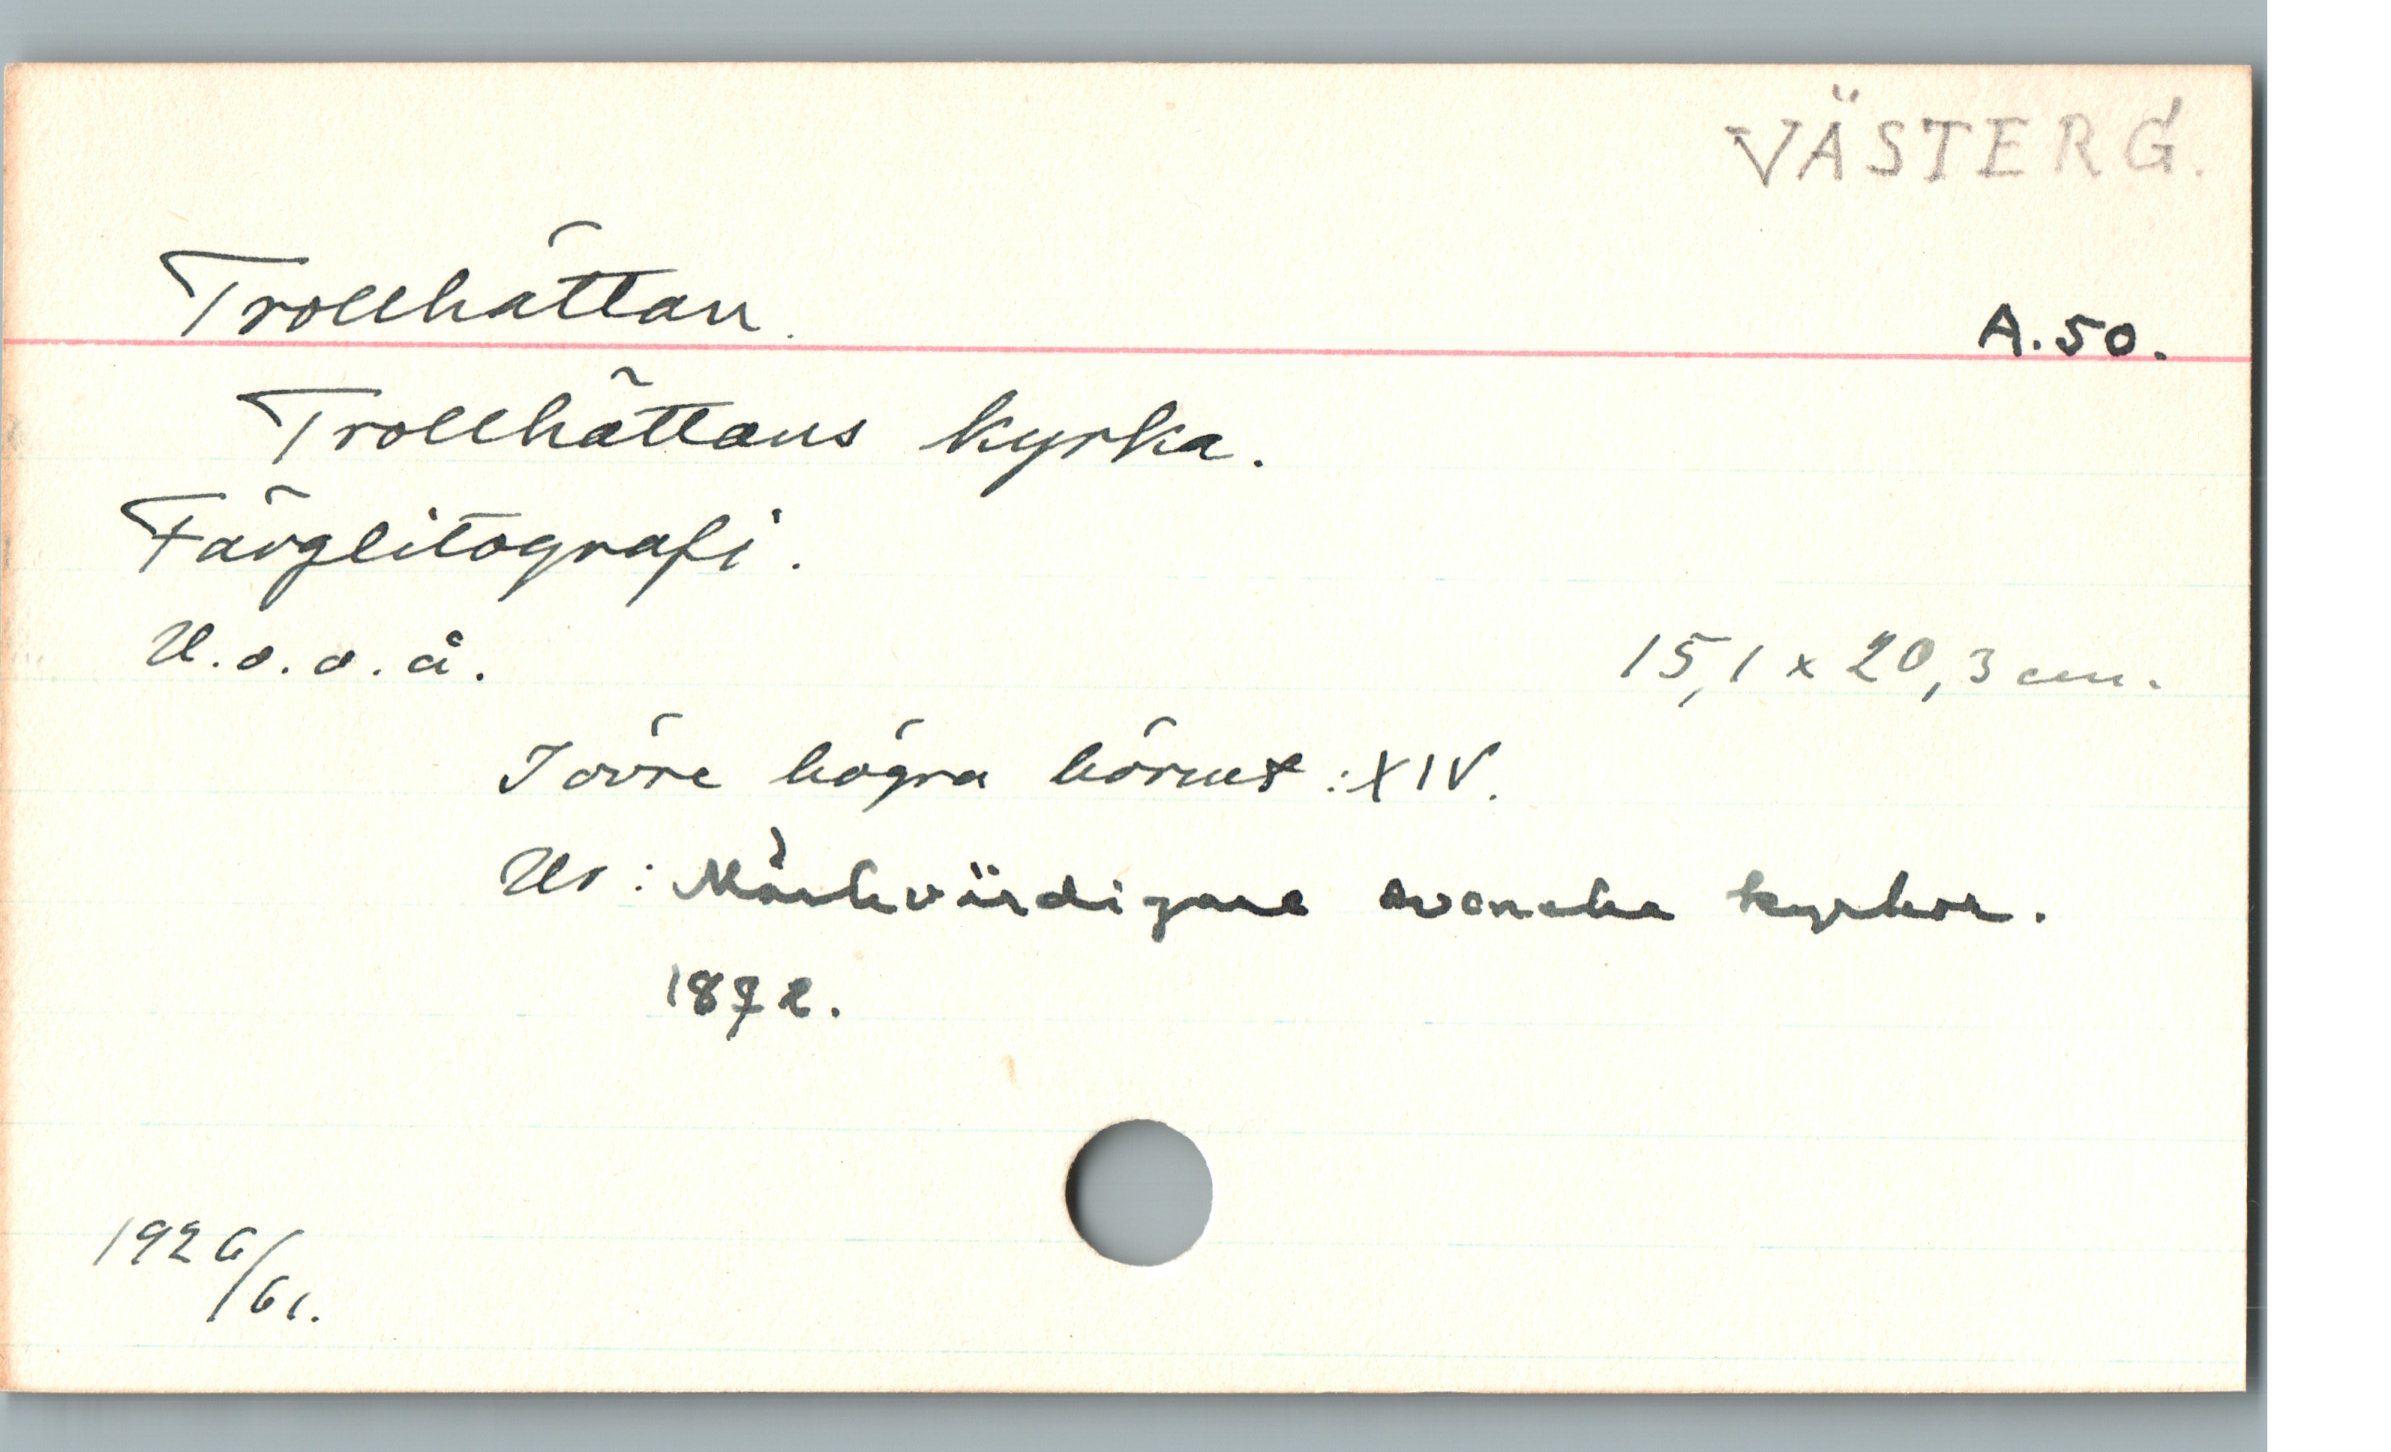 VÄSTERG.
Trollhättan.
A.50.
Trollhättans kyrka.
Färglitografi.
U.o.o.å.
15,1 x 20,3 cm.
I övre högra hörnet: XIV.
Ur: Märkvärdigare svenska kyrkor.
1872.
1926/61.